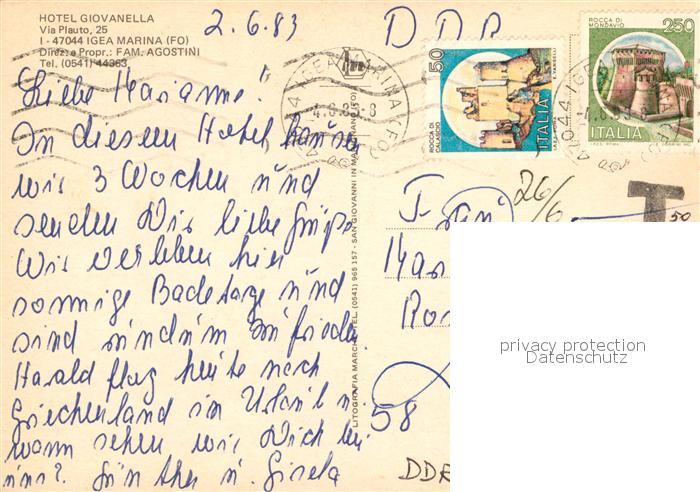 HOTEL GIOVANELLA
Via Plauto, 25
I - 47044 IGEA MARINA (FO)
Direz. e Propr.: FAM. AGOSTINI
Tel. (0541) 44363
2.6.83
DDR
Liebe Marianne!
In diesem Hotel hausen
wir 3 Wochen und
senden Dir liebe Grüße
Wir verleben hier
sonnige Badetage und
sind rundum zufrieden.
Harald flog heute nach
Griechenland im Urlaub
wann sehen wir Dich bei
uns? Günther u. Gisela
LITOGRAFIA MARCHI TEL. (0541) 965 157 - SAN GIOVANNI IN MARIGNANO (FO)
50
ROCCA DI CALASCIO
ITALIA
ROCCA DI MONDAVIO
250
ITALIA
47044 IGEA MARINA (FO)
4.6.83-8
26/6
T
50
Fran
Mar
Ros
58
DDR
privacy protection
Datenschutz